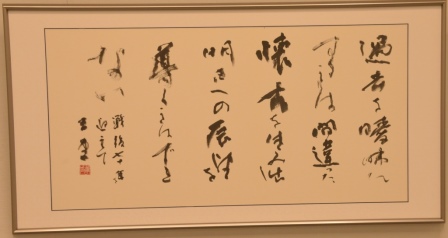 過去を曖昧に
することは間違った
懐古を生み出
明日への展望を
導くことは
ない
戦後七十年
迎えて